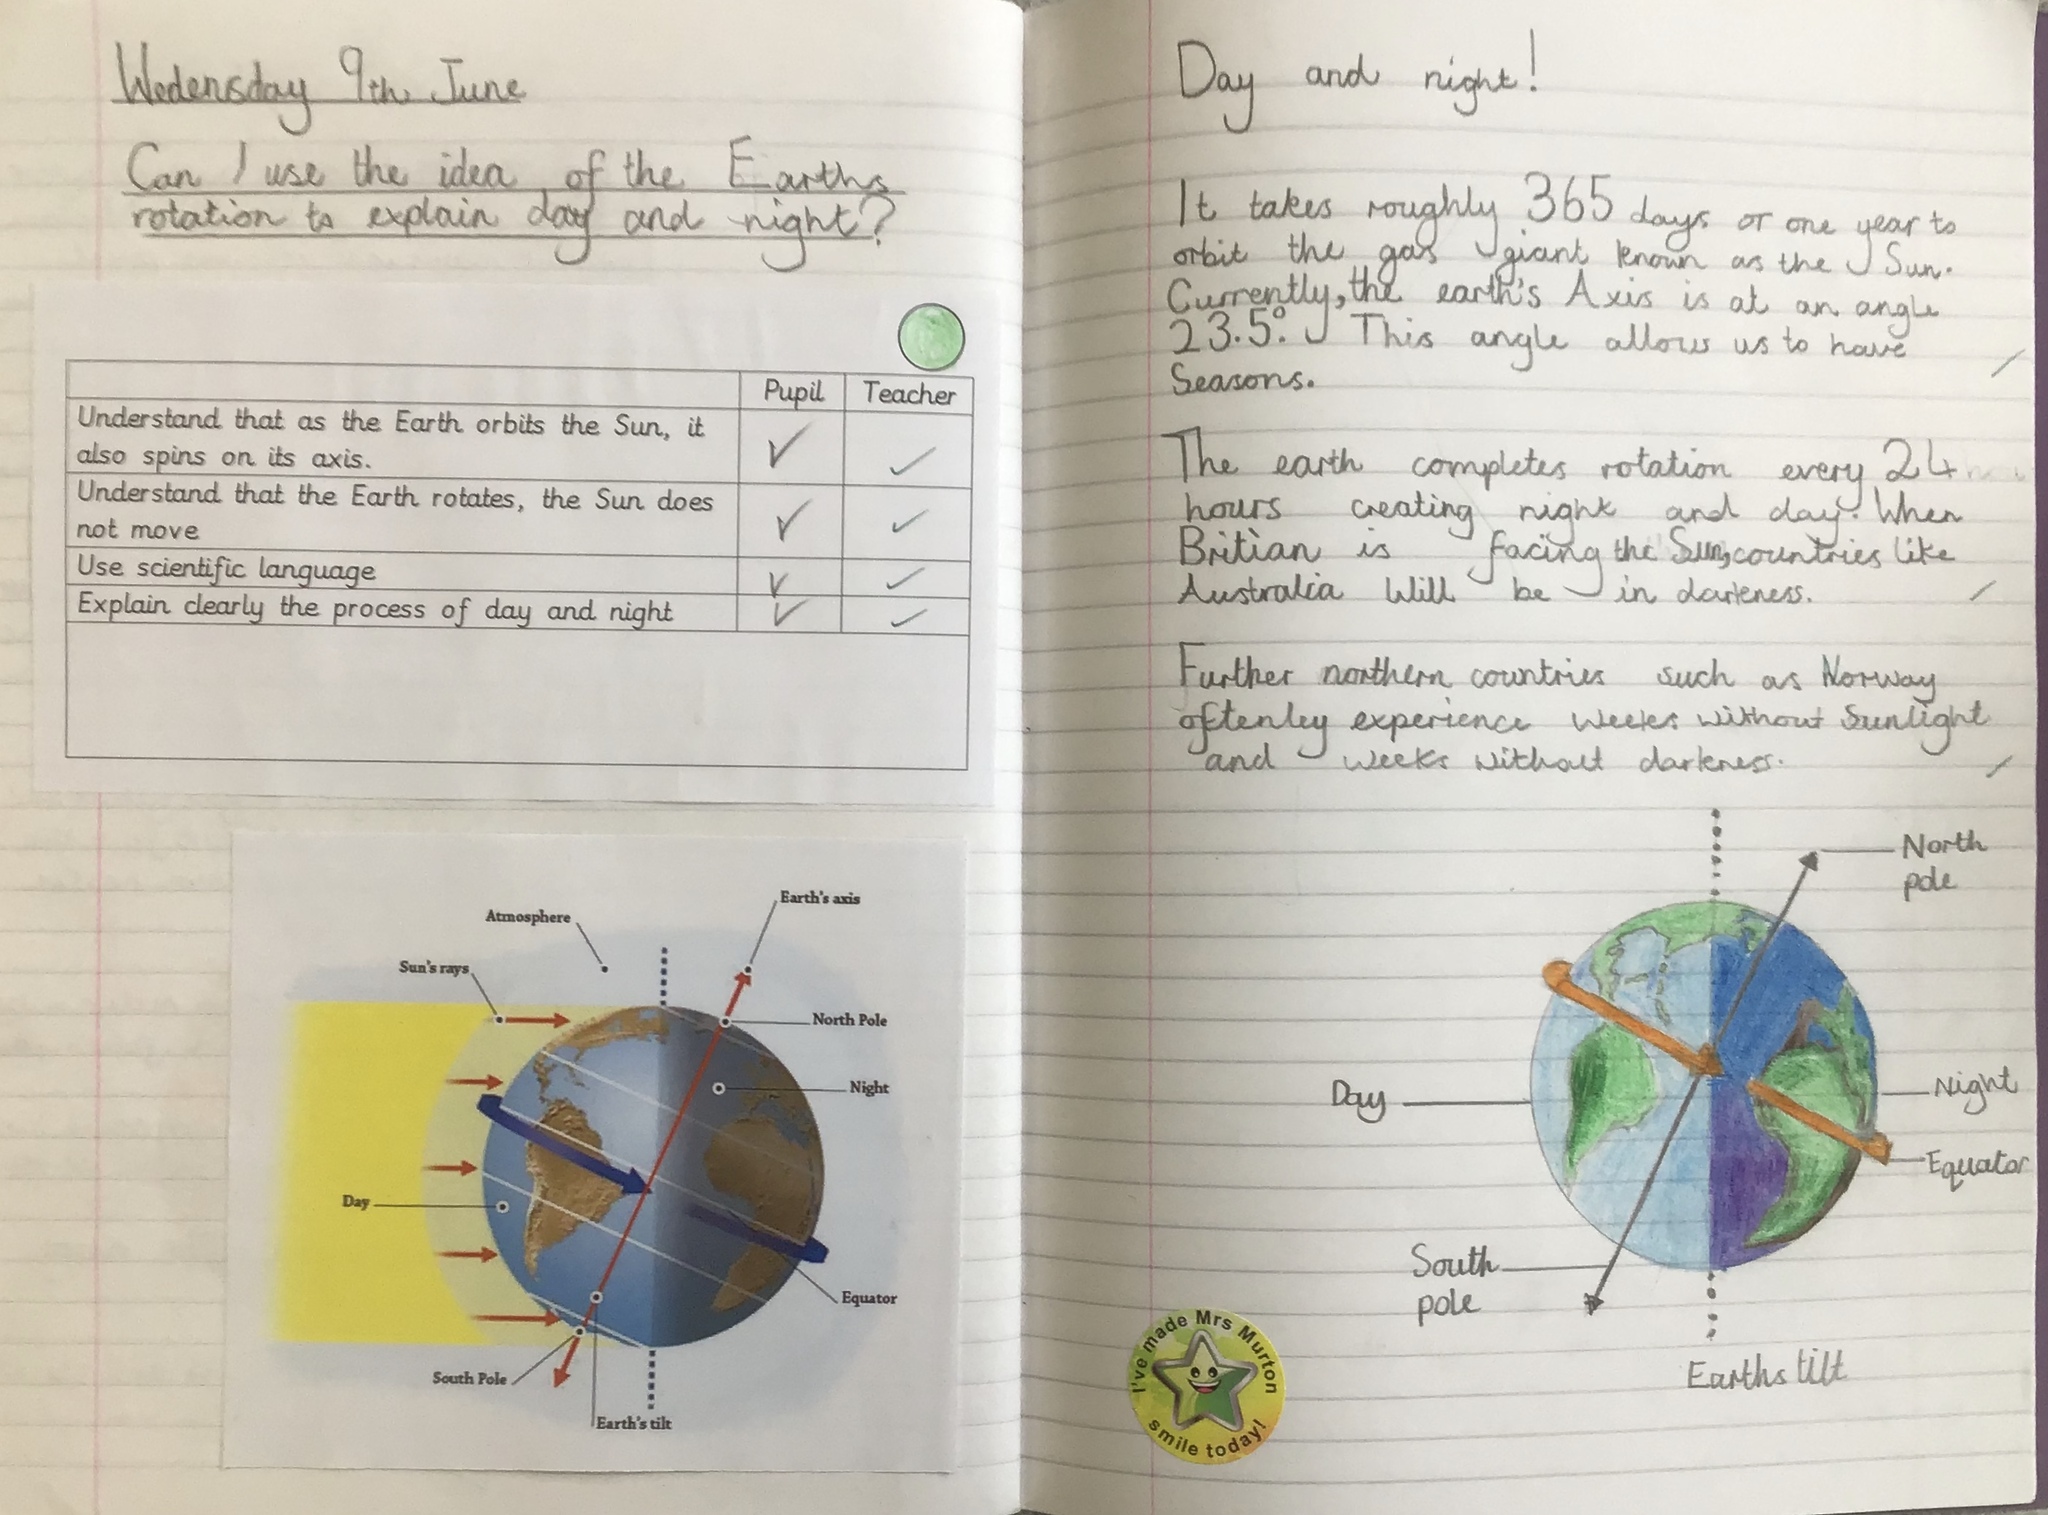 Wedensday 9th June
Can I use the idea of the Earths
rotation to explain day and night?
Pupil Teacher
Understand that as the Earth orbits the Sun, it
also spins on its axis.
Understand that the Earth rotates, the Sun does
not move
Use scientific language
Explain clearly the process of day and night
Earth's axis
Atmosphere
Sun's rays
North Pole
Night
Day
Equator
South Pole
Earth's tilt
Day and night!
It takes roughly 365 days or one year to
orbit the gas giant known as the Sun.
Currently, the earth's Axis is at an angle
23.5°. This angle allows us to have
Seasons.
The earth completes rotation every 24
hours creating night and day. When
Britian is facing the Sun, countries like
Australia Will be in darkness.
Further northern countries such as Norway
oftenley experience weeks without Sunlight
and weeks without darkness.
North
pole
Day
Night
Equator
South
pole
Earths tilt
I've made Mrs Murton
smile today!